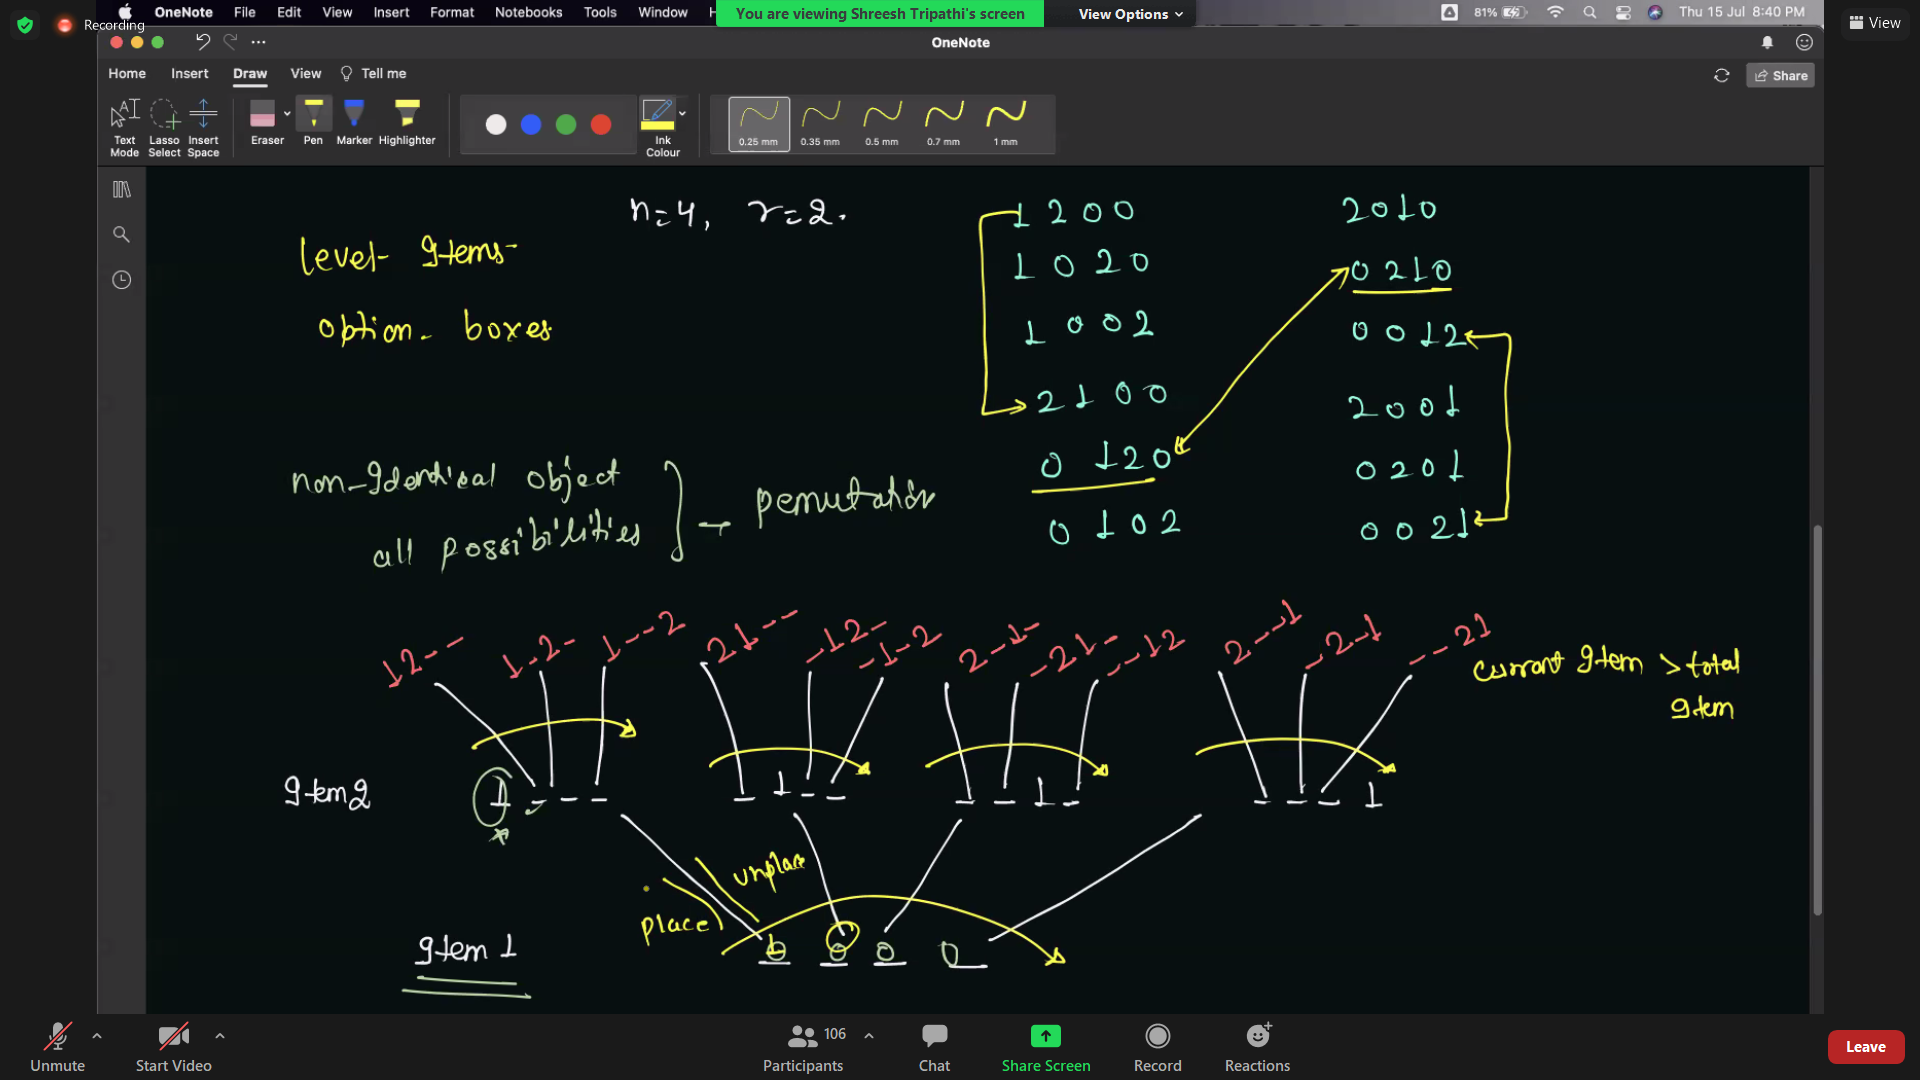 OneNote File Edit View Insert Format Notebooks Tools Window H
You are viewing Shreesh Tripathi's screen
View Options
81% Thu 15 Jul 8:40 PM
View
Recording
OneNote
Home Insert Draw View Tell me
Share
Text Mode
Lasso Select
Insert Space
Eraser
Pen
Marker
Highlighter
Ink Colour
0.25 mm 0.35 mm 0.5 mm 0.7 mm 1 mm
n=4, r=2.
level - Items -
option - boxes
1 2 0 0
1 0 2 0
1 0 0 2
2 1 0 0
0 1 2 0
0 1 0 2
2 0 1 0
0 2 1 0
0 0 1 2
2 0 0 1
0 2 0 1
0 0 2 1
non-Identical object
all possibilities
- permutation
1 2 - -
1 - 2 -
1 - - 2
2 1 - -
- 1 2 -
- 1 - 2
2 - 1 -
- 2 1 -
- - 1 2
2 - - 1
- 2 - 1
- - 2 1
current Item > total Item
Item 2
1 - - -
- 1 - -
- - 1 -
- - - 1
unplace
place
Item 1
0 0 0
Unmute
Start Video
Participants 106
Chat
Share Screen
Record
Reactions
Leave